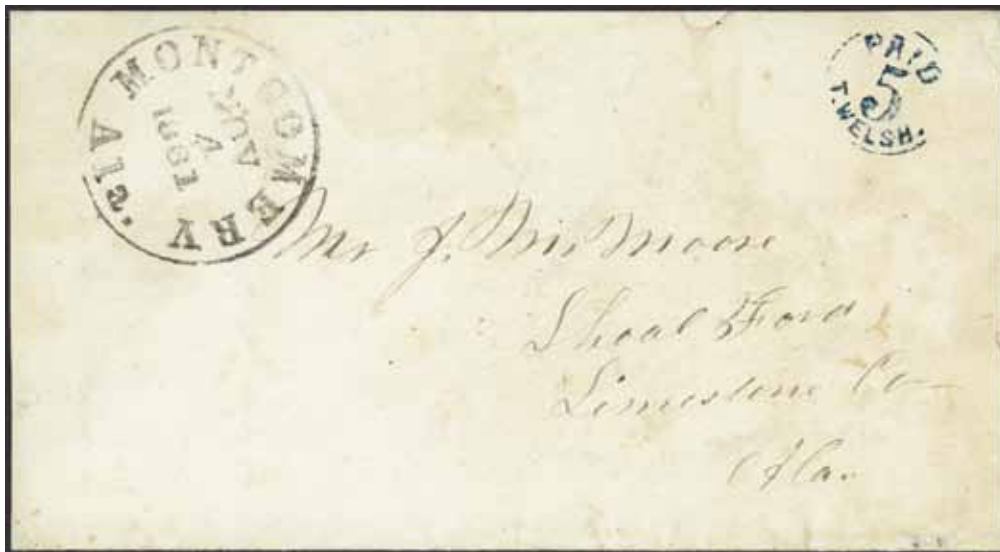 MONTGOMERY Ala.
AUG
1861
PAID
5
T. WELSH.
Mr J. Moore
Shoal Ford
Limestone Co
Ala.